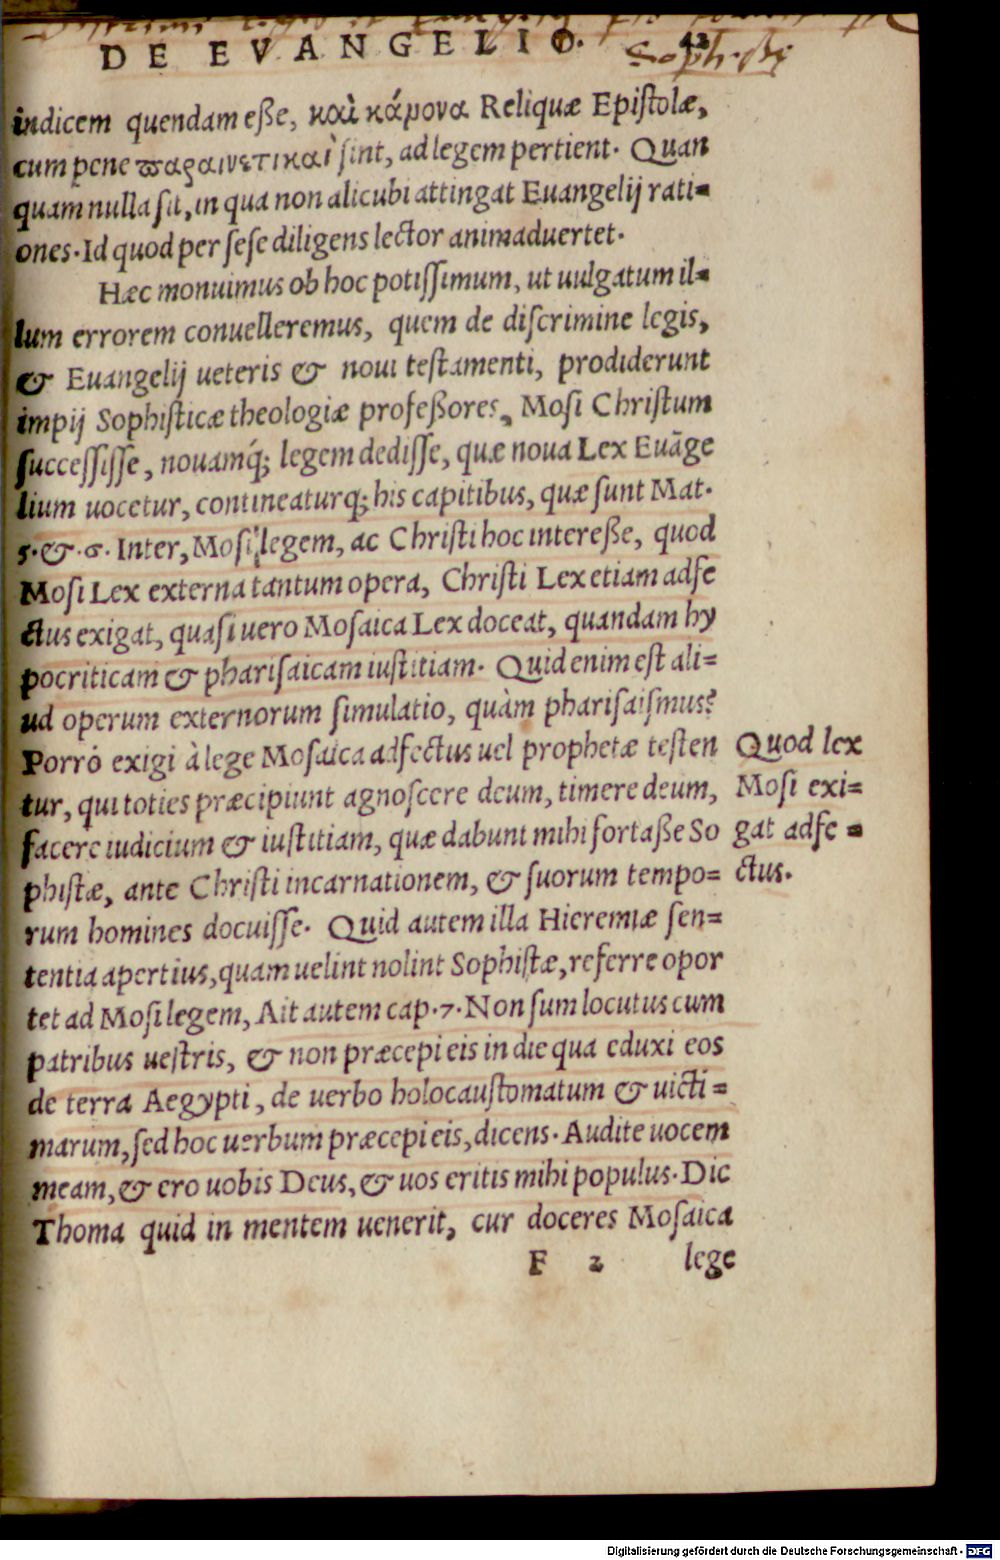 DE EVANGELIO. 42
Sophistę
indicem quendam eße, καὶ κάμονα Reliquæ Epistolæ,
cum pene παραινετικαὶ sint, ad legem pertient. Quan
quam nulla sit, in qua non alicubi attingat Euangelij rati=
ones. Id quod per sese diligens lector animaduertet.
Hæc monuimus ob hoc potissimum, ut uulgatum il=
lum errorem conuelleremus, quem de discrimine legis,
& Euangelij ueteris & noui testamenti, prodiderunt
impij Sophisticæ theologiæ profeßores, Mosi Christum
successisse, nouamq́; legem dedisse, quæ noua Lex Euāge
lium uocetur, contineaturq; his capitibus, quæ sunt Mat.
5. & .6. Inter, Mosi legem, ac Christi hoc intereße, quod
Mosi Lex externa tantum opera, Christi Lex etiam adfe
ctus exigat, quasi uero Mosaica Lex doceat, quandam hy
pocriticam & pharisaicam iustitiam. Quid enim est ali=
ud operum externorum simulatio, quàm pharisaismus?
Porrò exigi à lege Mosaica adfectus uel prophetæ testen
tur, qui toties præcipiunt agnoscere deum, timere deum,
facere iudicium & iustitiam, quæ dabunt mihi fortaße So
phistæ, ante Christi incarnationem, & suorum tempo=
rum homines docuisse. Quid autem illa Hieremiæ sen=
tentia apertius, quam uelint nolint Sophistæ, referre opor
tet ad Mosi legem, Ait autem cap. 7. Non sum locutus cum
patribus uestris, & non præcepi eis in die qua eduxi eos
de terra Aegypti, de uerbo holocaustomatum & uicti=
marum, sed hoc uerbum præcepi eis, dicens. Audite uocem
meam, & ero uobis Deus, & uos eritis mihi populus. Dic
Thoma quid in mentem uenerit, cur doceres Mosaica
F 2 lege
Quod lex
Mosi exi=
gat adfe=
ctus.
Digitalisierung gefördert durch die Deutsche Forschungsgemeinschaft - DFG